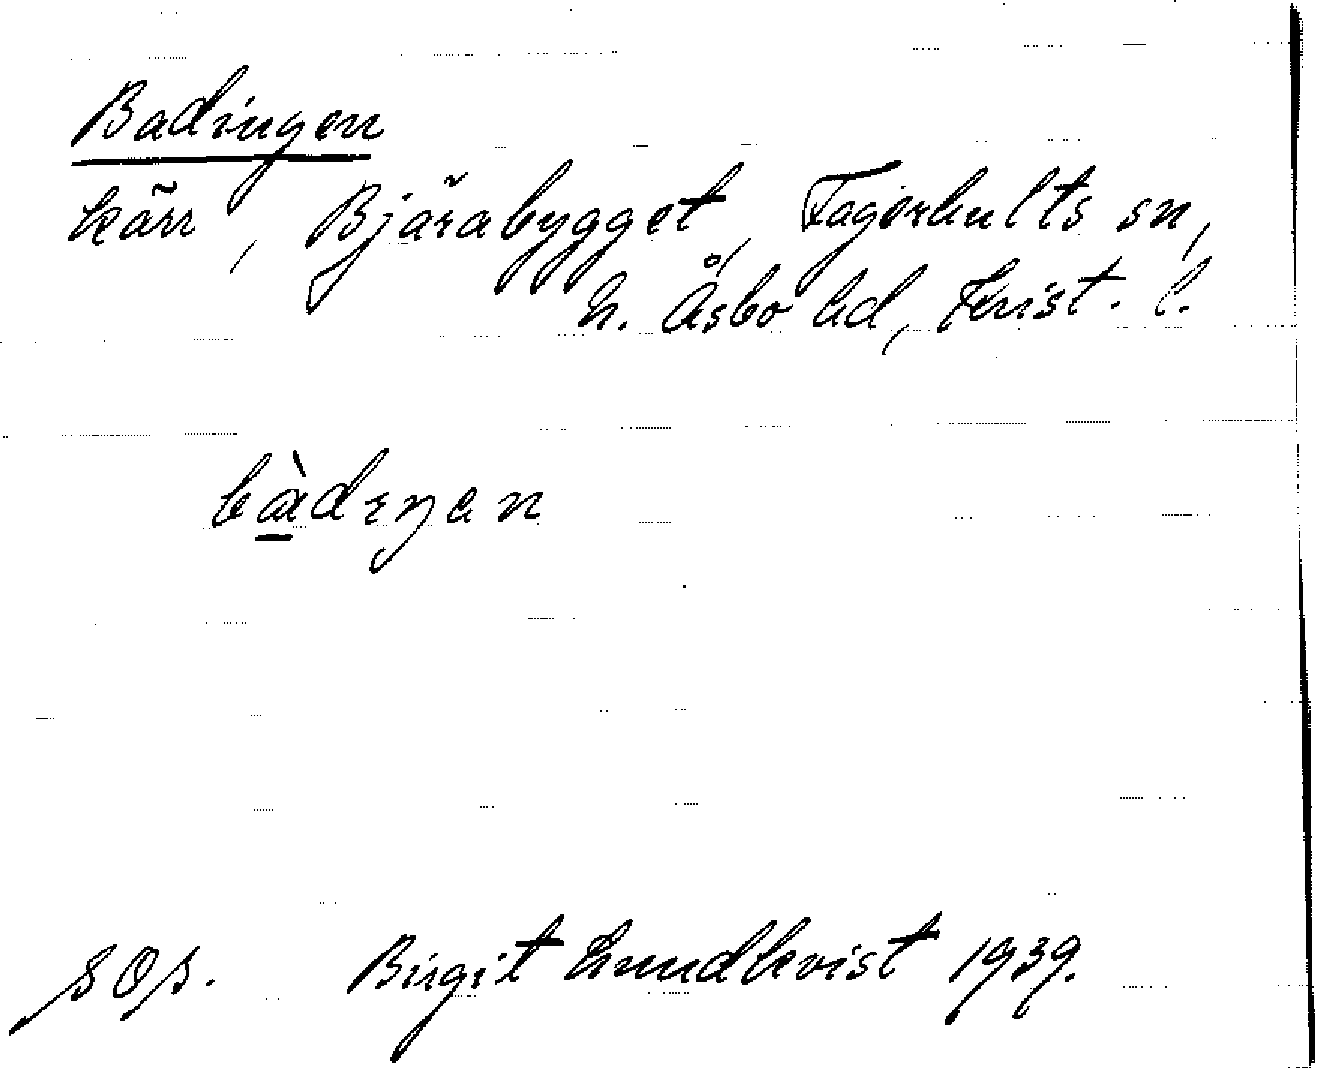 Badingen
kärr, Bjärabygget, Fagerhults sn,
N. Åsbo hd, Krist. l.
bàdeŋen
SOS. Birgit Lundkvist 1939.